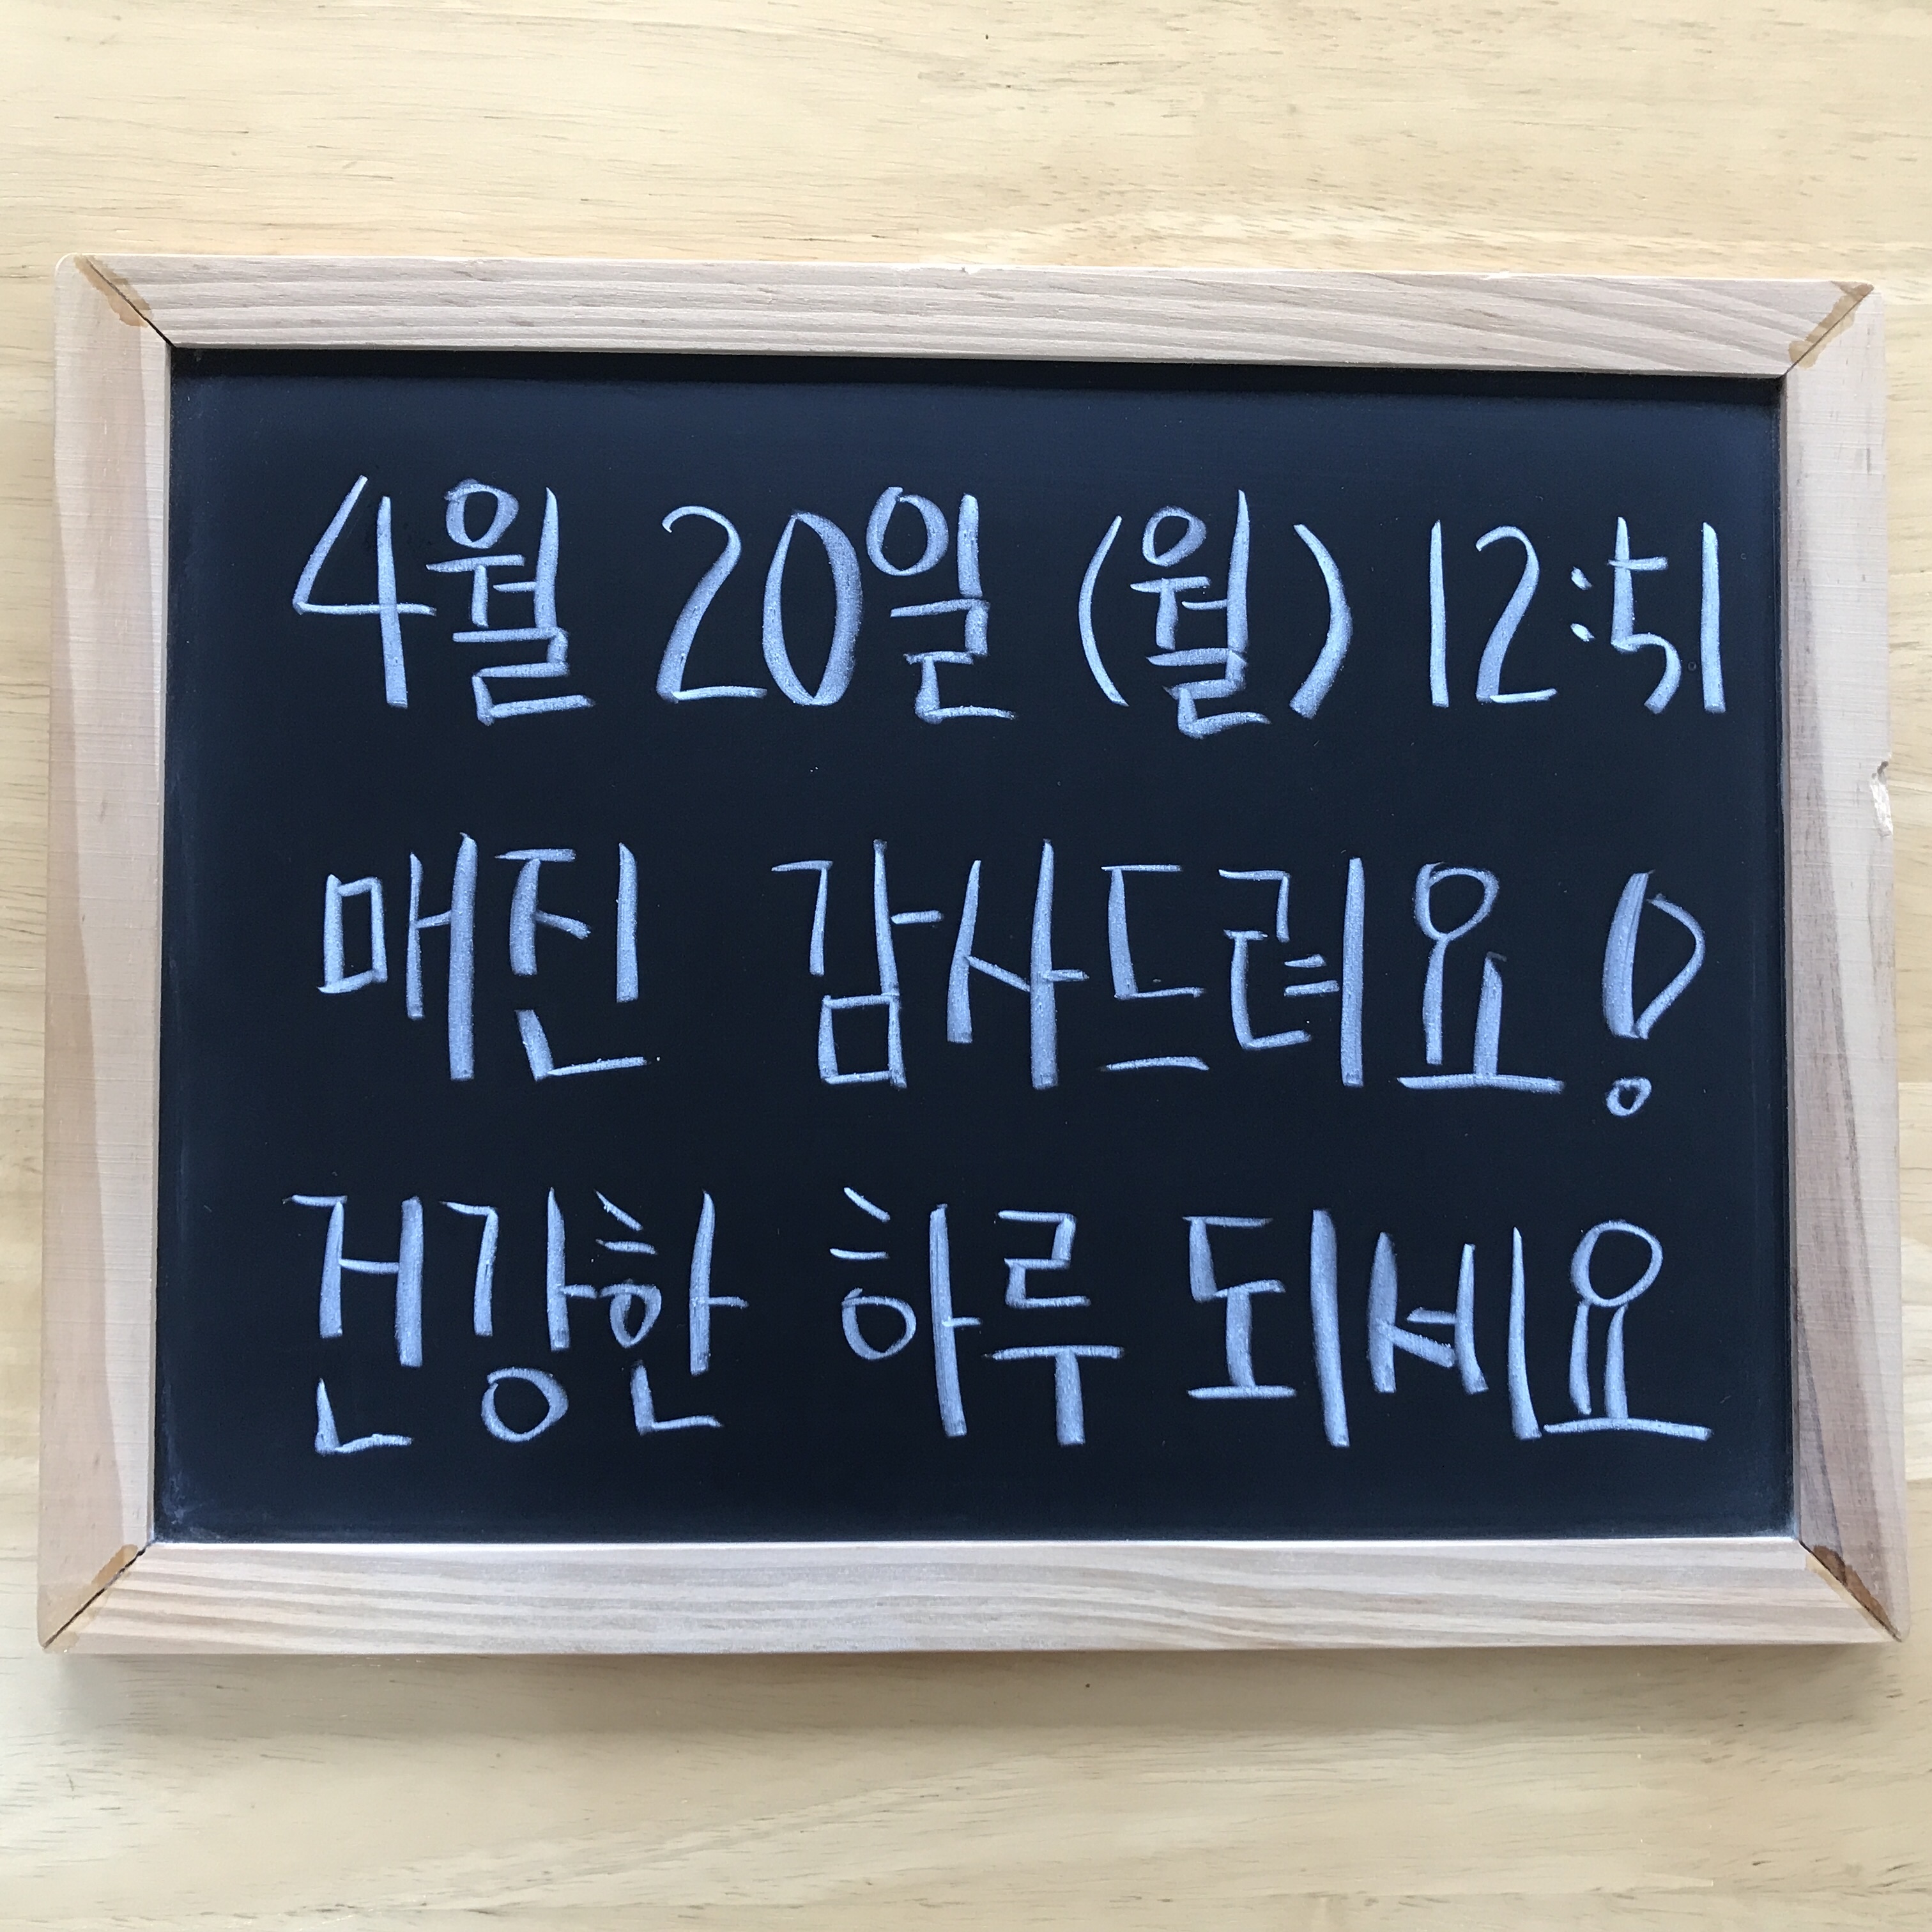 4월 20일 (월) 12:51
매진 감사드려요!
건강한 하루 되세요